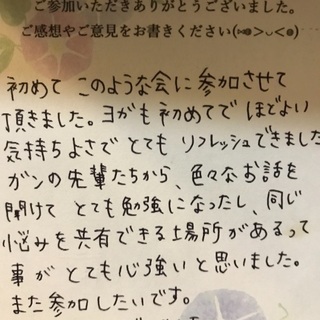 ご参加いただきありがとうございました。
ご感想やご意見をお書きください
初めて このような会に参加させて
頂きました。ヨガも初めてで ほどよい
気持ちよさで とても リフレッシュできました
ガンの先輩たちから、色々なお話を
聞けて とても勉強になったし、同じ
悩みを共有できる場所があるって
事が とても心強いと思いました。
また参加したいです。